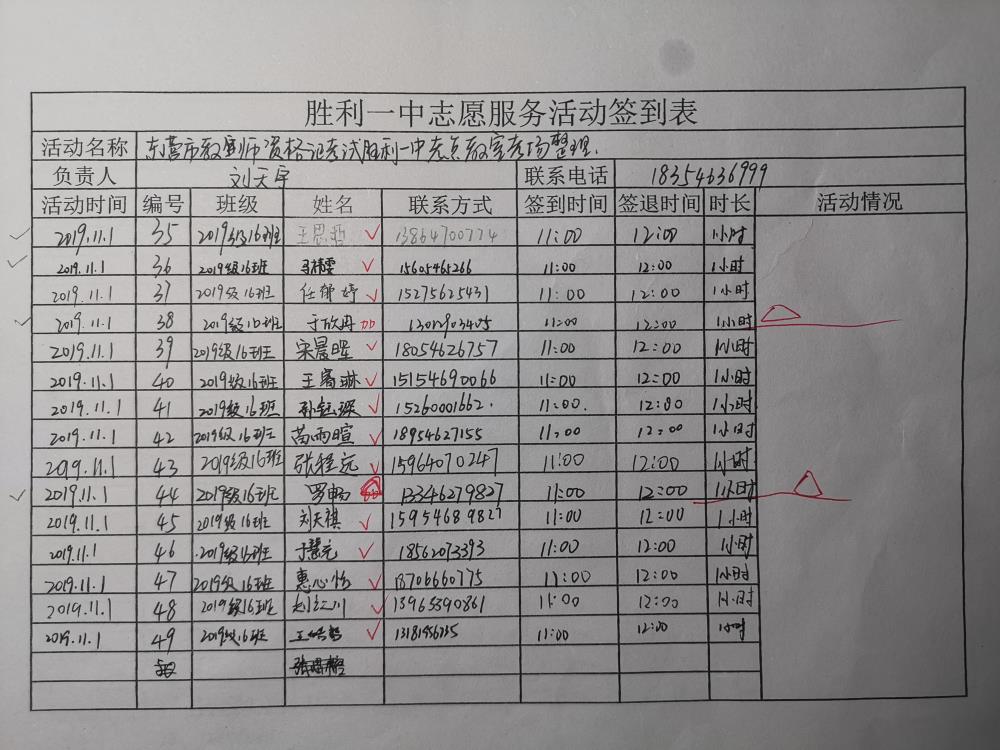 胜利一中志愿服务活动签到表
活动名称 东营市教师资格证考试胜利一中考点教室考场整理.
负责人 刘天宇 联系电话 18354636999
活动时间 编号 班级 姓名 联系方式 签到时间 签退时间 时长 活动情况
2019.11.1 35 2019级16班 王思哲 13864700774 11:00 12:00 1小时
2019.11.1 36 2019级16班 15605465266 11:00 12:00 1小时
2019.11.1 37 2019级16班 任郁婷 15275625431 11:00 12:00 1小时
2019.11.1 38 2019级10班 于欣冉 11:00 12:00 1小时
2019.11.1 39 2019级16班 宋晨晖 18054626757 11:00 12:00 1小时
2019.11.1 40 2019级16班 15154690066 11:00 12:00 1小时
2019.11.1 41 2019级16班 孙钰琛 15260001662. 11:00. 12:00 1小时
2019.11.1 42 2019级16班 苗雨暄 18954627155 11:00 12:00 1小时
2019.11.1 43 2019级16班 张程远 15964070247 11:00 12:00 1小时
2019.11.1 44 2019级16班 罗畅 13346279827 11:00 12:00 1小时
2019.11.1 45 2019级16班 刘天祺 15954689827 11:00 12:00 1小时
2019.11.1 46 2019级16班 于慧元 18562073393 11:00 12:00 1小时
2019.11.1 47 2019级16班 惠心怡 18706660775 11:00 12:00 1小时
2019.11.1 48 2019级16班 赵江川 13965390861 11:00 12:00 1小时
2019.11.1 49 2019级16班 11:00 12:00 1小时